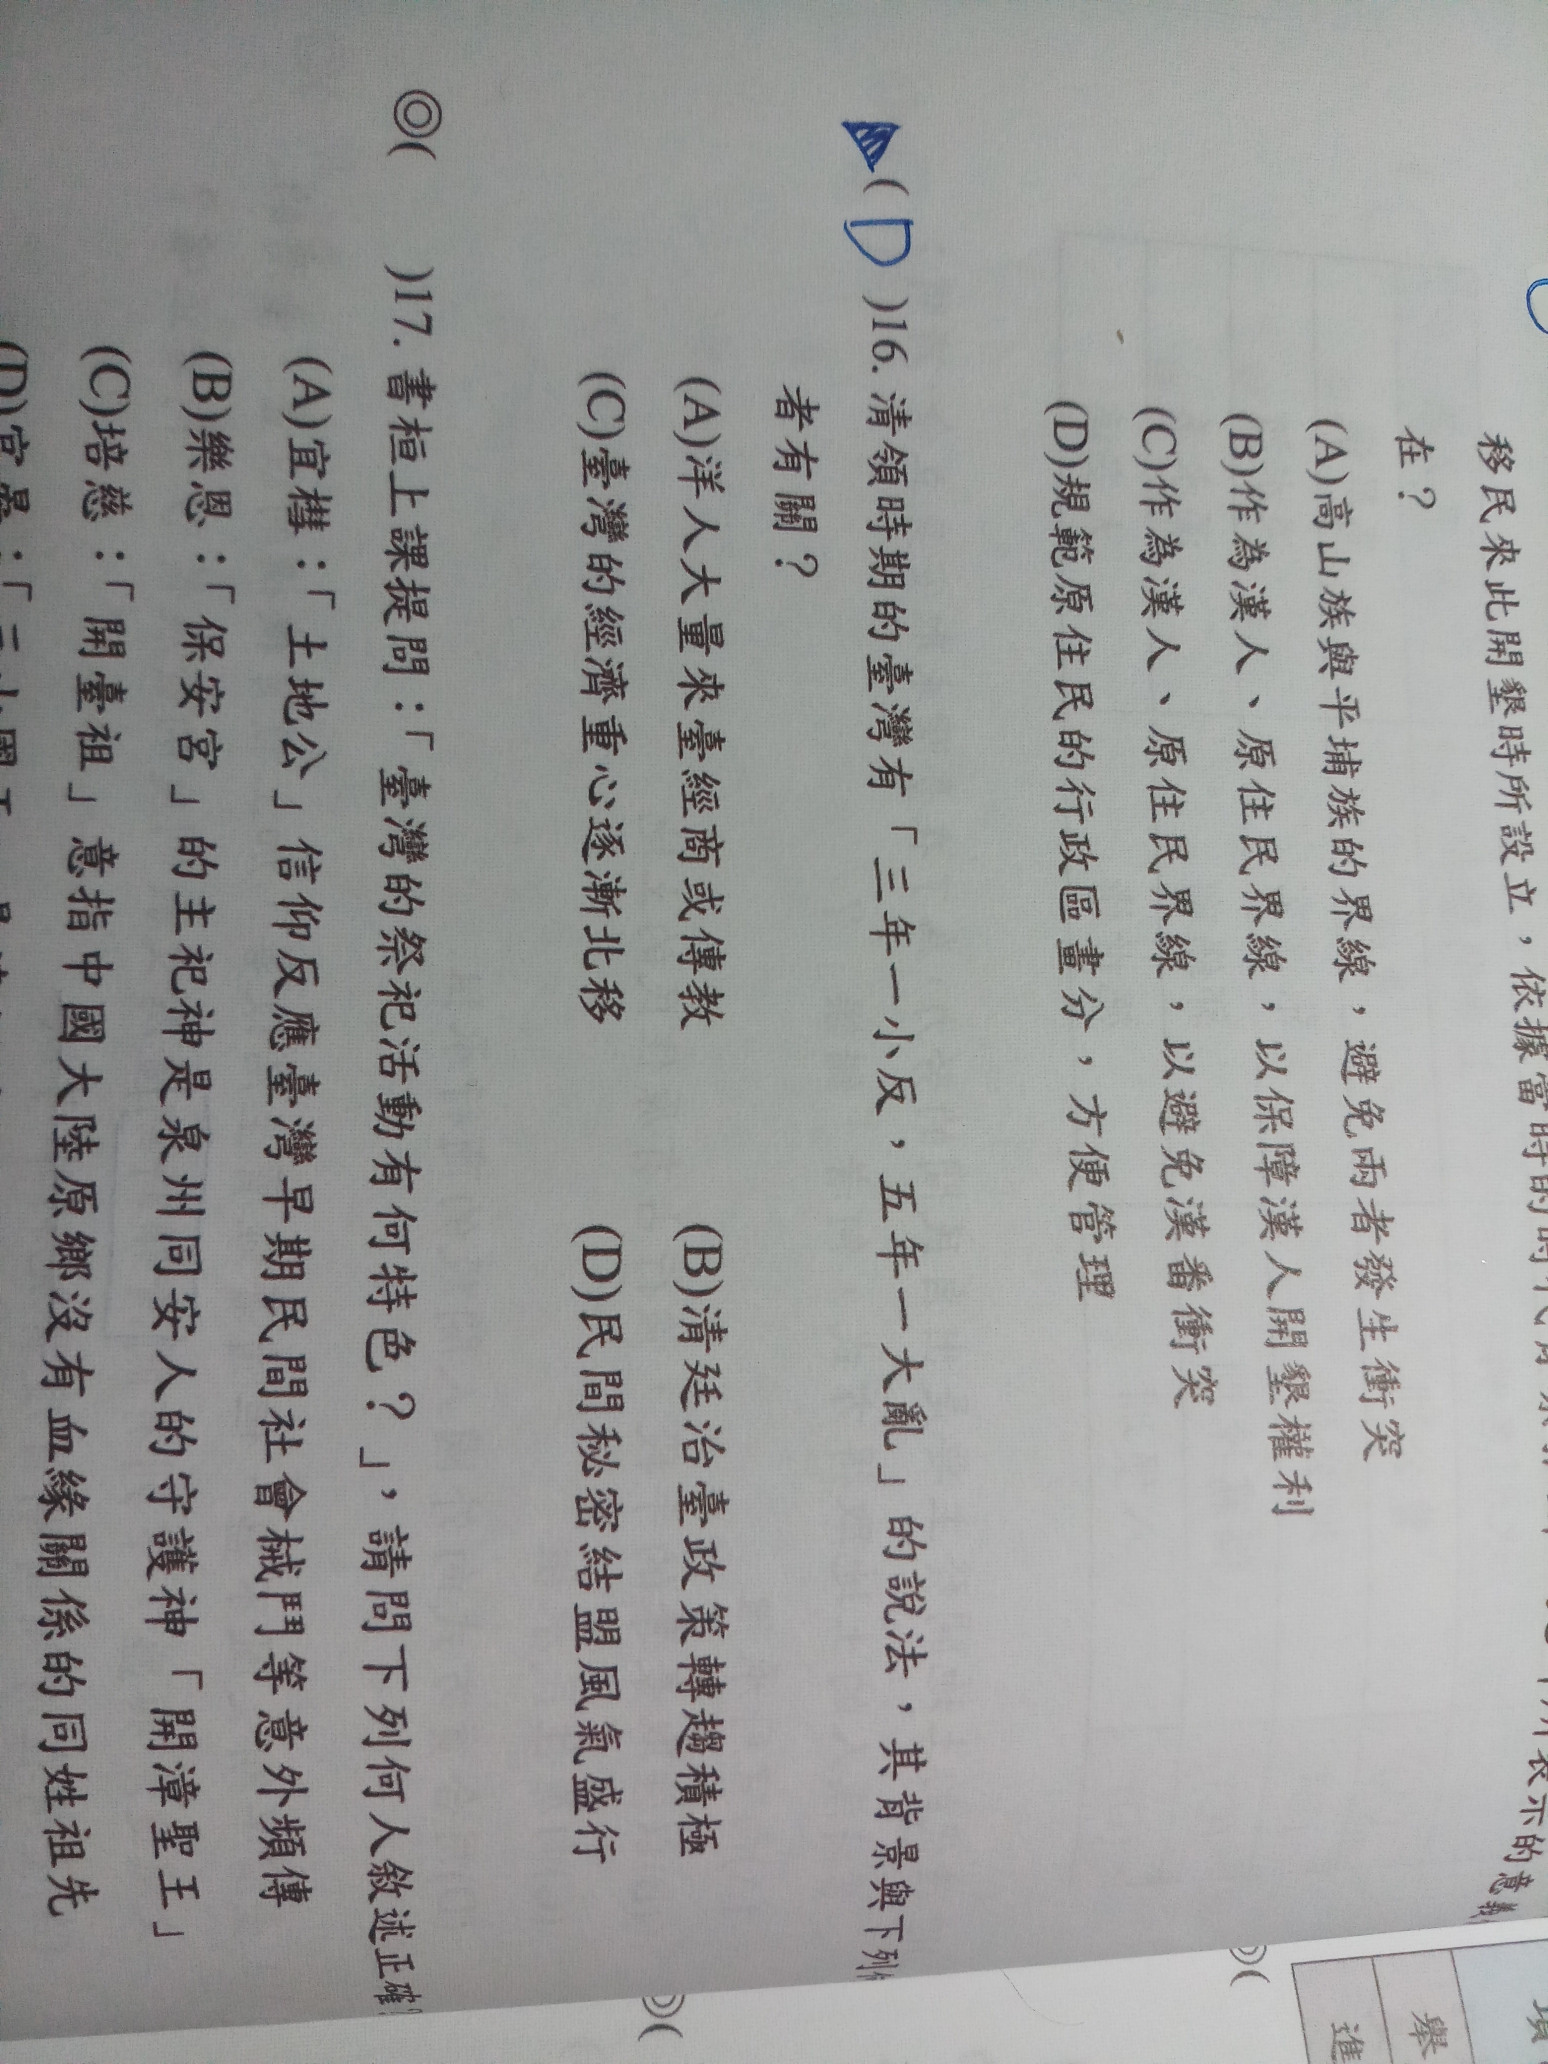 移民來此開墾時所設立，依據當時的時代背景
表示的意義
在？
(A)高山族與平埔族的界線，避免兩者發生衝突
(B)作為漢人、原住民界線，以保障漢人開墾權利
(C)作為漢人、原住民界線，以避免漢番衝突
(D)規範原住民的行政區畫分，方便管理
(D)16.清領時期的臺灣有「三年一小反，五年一大亂」的說法，其背景與下列
者有關？
(A)洋人大量來臺經商或傳教 (B)清廷治臺政策轉趨積極
(C)臺灣的經濟重心逐漸北移 (D)民間秘密結盟風氣盛行
◎( )17.書桓上課提問：「臺灣的祭祀活動有何特色？」，請問下列何人敘述正確
(A)宜橞：「土地公」信仰反應臺灣早期民間社會械鬥等意外頻傳
(B)樂恩：「保安宮」的主祀神是泉州同安人的守護神「開漳聖王」
(C)培慈：「開臺祖」意指中國大陸原鄉沒有血緣關係的同姓祖先
(D)宜
◎(
◎(
項
舉
進